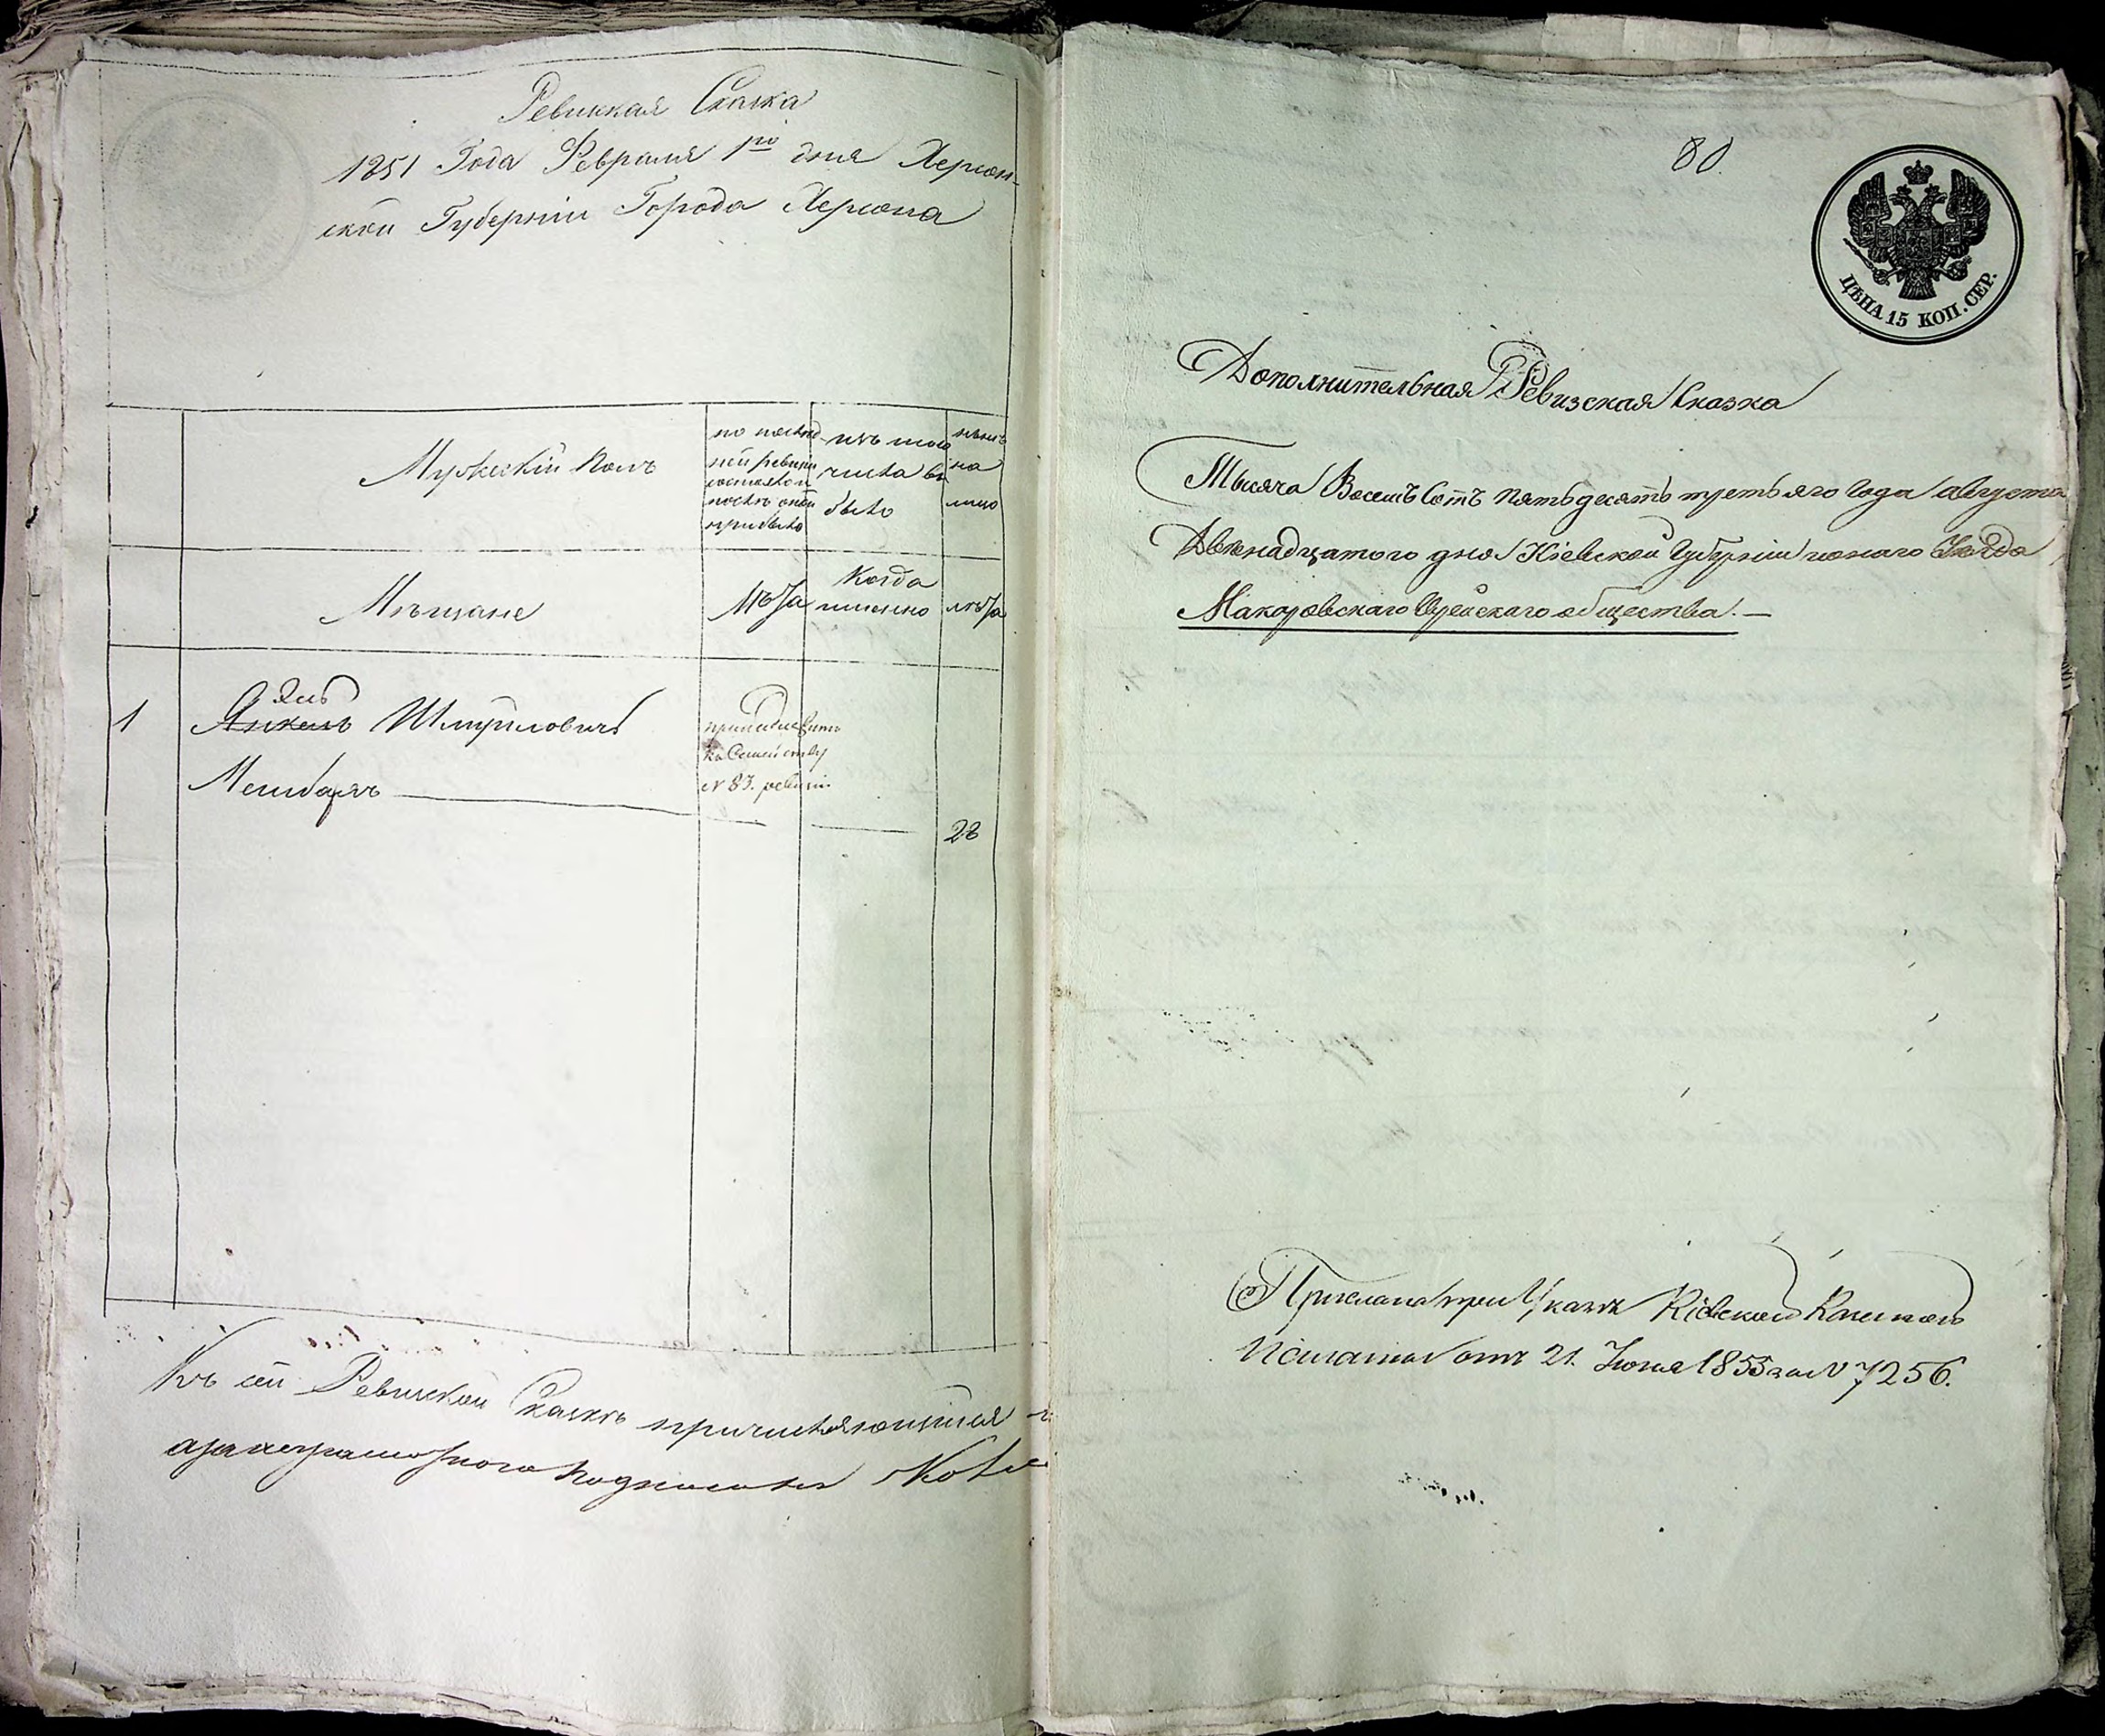 Ревизкая Сказка
1851 Года Февраля 1го дня Херсон-
ской Губерніи Города Херсона
Мужескій полъ
по послѣд
ней ревизіи
состояло и
послѣ оной
прибыло
изъ того
числа вы
было
нынѣ
на
лицо
Мѣщане
Лѣта
Когда
именно
лѣта
Эль
1 Янкель Шмуиловичъ
Мешбаръ
принадлежитъ
къ Семейству
№ 83. ревизіи
28
Къ сей Ревизской Сказкѣ причисляющійся
а за неграмотного
80.
ЦѢНА 15 КОП. СЕР.
Дополнительная Ревизская Сказка
Тысяча Восемъ Сотъ пятьдесятъ третьяго Года августа
Двенадцатого дня Кіевской Губерніи Уезда
Макаровскаго Еврейскаго общества.—
Прислана при Указѣ Кіевской Казенной
Палаты отъ 21. Іюня 1855 за № 7256.